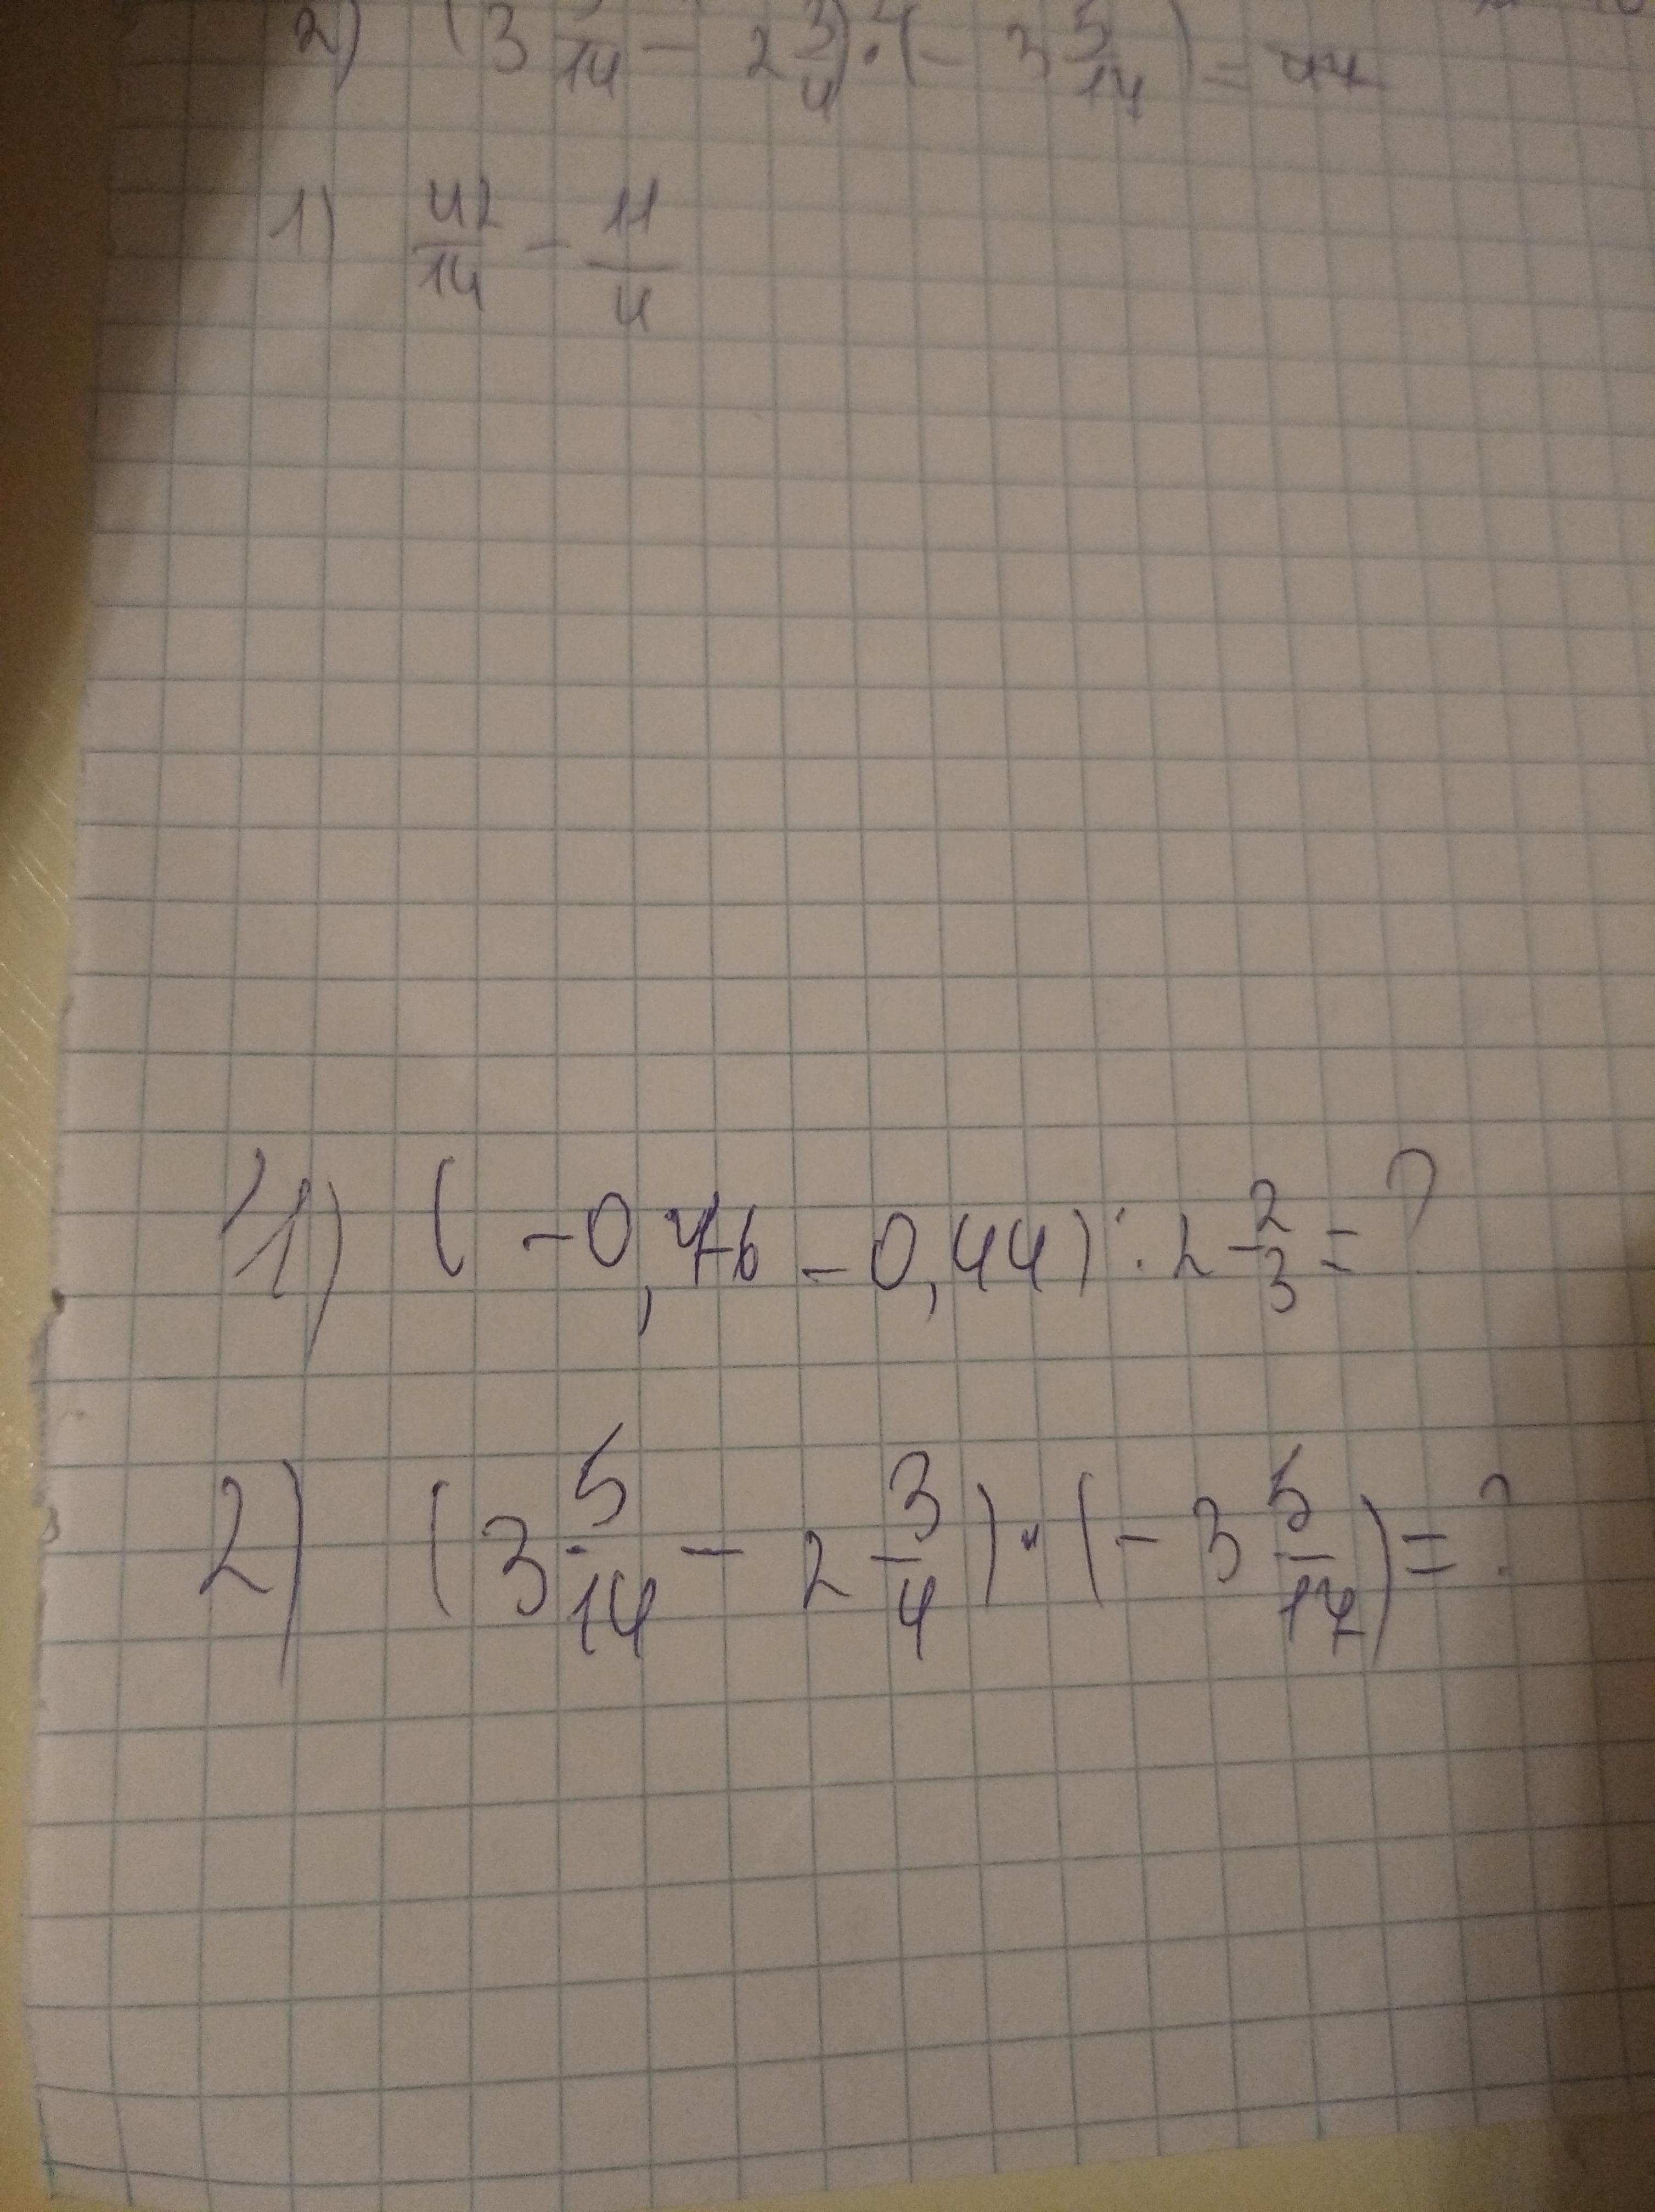 2) (3 5/14 - 2 3/4) · (- 3 5/14) =
1) 42/14 - 11/4
1) ( -0,76 - 0,44) : 2 2/3 = ?
2) (3 5/14 - 2 3/4) · (- 3 5/17) = ?